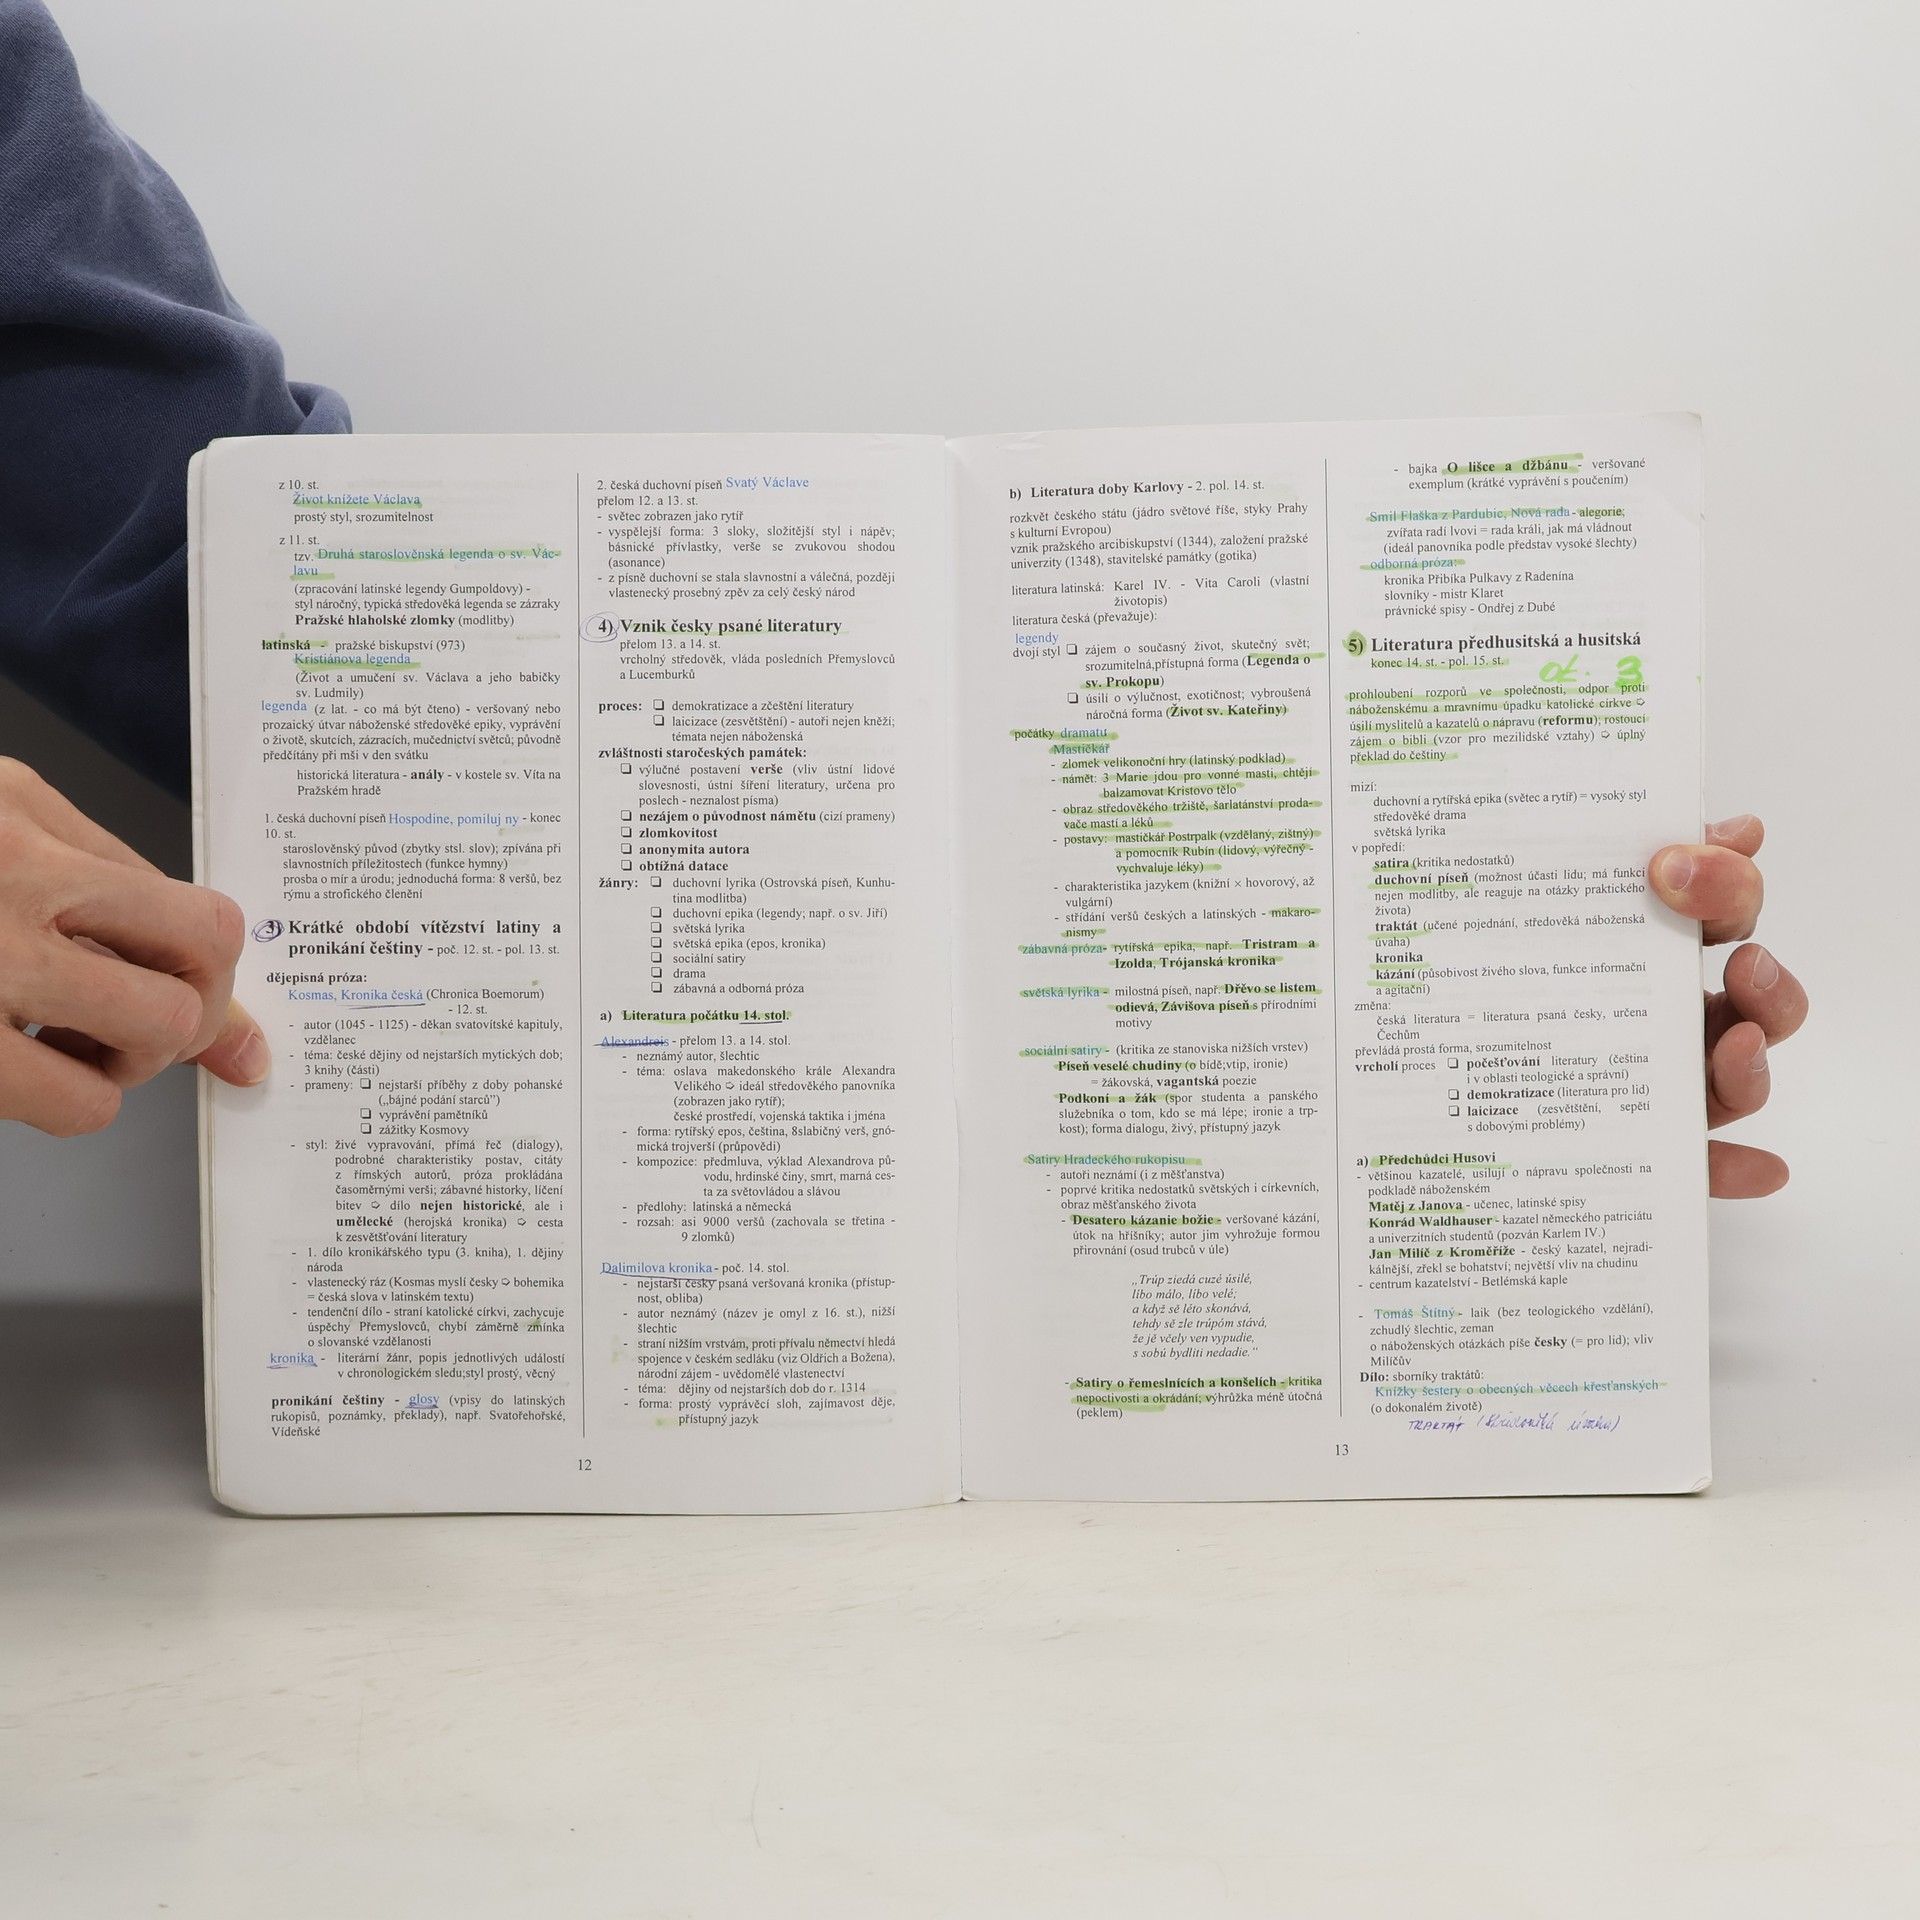 z 10. st.
Život knížete Václava
prostý styl, srozumitelnost
z 11. st.
tzv. Druhá staroslověnská legenda o sv. Vác-
lavu
(zpracování latinské legendy Gumpoldovy) -
styl náročný, typická středověká legenda se zázraky
Pražské hlaholské zlomky (modlitby)
latinská - pražské biskupství (973)
Kristiánova legenda
(Život a umučení sv. Václava a jeho babičky
sv. Ludmily)
legenda (z lat. - co má být čteno) - veršovaný nebo
prozaický útvar náboženské středověké epiky, vyprávění
o životě, skutcích, zázracích, mučednictví světců; původně
předčítány při mši v den svátku
historická literatura - anály - v kostele sv. Víta na
Pražském hradě
1. česká duchovní píseň Hospodine, pomiluj ny - konec
10. st.
staroslověnský původ (zbytky stsl. slov); zpívána při
slavnostních příležitostech (funkce hymny)
prosba o mír a úrodu; jednoduchá forma: 8 veršů, bez
rýmu a strofického členění
3) Krátké období vítězství latiny a
pronikání češtiny - poč. 12. st. - pol. 13. st.
dějepisná próza:
Kosmas, Kronika česká (Chronica Boemorum)
- 12. st.
- autor (1045 - 1125) - děkan svatovítské kapituly,
vzdělanec
- téma: české dějiny od nejstarších mytických dob;
3 knihy (části)
- prameny: ❏ nejstarší příběhy z doby pohanské
(„bájné podání starců”)
❏ vyprávění pamětníků
❏ zážitky Kosmovy
- styl: živé vypravování, přímá řeč (dialogy),
podrobné charakteristiky postav, citáty
z římských autorů, próza prokládána
časoměrnými verši; zábavné historky, líčení
bitev ➪ dílo nejen historické, ale i
umělecké (herojská kronika) ➪ cesta
k zesvětšťování literatury
- 1. dílo kronikářského typu (3. kniha), 1. dějiny
národa
- vlastenecký ráz (Kosmas myslí česky ➪ bohemika
= česká slova v latinském textu)
- tendenční dílo - straní katolické církvi, zachycuje
úspěchy Přemyslovců, chybí záměrně zmínka
o slovanské vzdělanosti
kronika - literární žánr, popis jednotlivých událostí
v chronologickém sledu;styl prostý, věcný
pronikání češtiny - glosy (vpisy do latinských
rukopisů, poznámky, překlady), např. Svatořehořské,
Vídeňské
12
2. česká duchovní píseň Svatý Václave
přelom 12. a 13. st.
- světec zobrazen jako rytíř
- vyspělejší forma: 3 sloky, složitější styl i nápěv;
básnické přívlastky, verše se zvukovou shodou
(asonance)
- z písně duchovní se stala slavnostní a válečná, později
vlastenecký prosebný zpěv za celý český národ
4) Vznik česky psané literatury
přelom 13. a 14. st.
vrcholný středověk, vláda posledních Přemyslovců
a Lucemburků
proces: ❏ demokratizace a zčeštění literatury
❏ laicizace (zesvětštění) - autoři nejen kněží;
témata nejen náboženská
zvláštnosti staročeských památek:
❏ výlučné postavení verše (vliv ústní lidové
slovesnosti, ústní šíření literatury, určena pro
poslech - neznalost písma)
❏ nezájem o původnost námětu (cizí prameny)
❏ zlomkovitost
❏ anonymita autora
❏ obtížná datace
žánry: ❏ duchovní lyrika (Ostrovská píseň, Kunhu-
tina modlitba)
❏ duchovní epika (legendy; např. o sv. Jiří)
❏ světská lyrika
❏ světská epika (epos, kronika)
❏ sociální satiry
❏ drama
❏ zábavná a odborná próza
a) Literatura počátku 14. stol.
Alexandreis - přelom 13. a 14. stol.
- neznámý autor, šlechtic
- téma: oslava makedonského krále Alexandra
Velikého ➪ ideál středověkého panovníka
(zobrazen jako rytíř);
české prostředí, vojenská taktika i jména
- forma: rytířský epos, čeština, 8slabičný verš, gnó-
mická trojverší (průpovědi)
- kompozice: předmluva, výklad Alexandrova pů-
vodu, hrdinské činy, smrt, marná ces-
ta za světovládou a slávou
- předlohy: latinská a německá
- rozsah: asi 9000 veršů (zachovala se třetina -
9 zlomků)
Dalimilova kronika - poč. 14. stol.
- nejstarší česky psaná veršovaná kronika (přístup-
nost, obliba)
- autor neznámý (název je omyl z 16. st.), nižší
šlechtic
- straní nižším vrstvám, proti přívalu němectví hledá
spojence v českém sedláku (viz Oldřich a Božena),
národní zájem - uvědomělé vlastenectví
- téma: dějiny od nejstarších dob do r. 1314
- forma: prostý vyprávěcí sloh, zajímavost děje,
přístupný jazyk
b) Literatura doby Karlovy - 2. pol. 14. st.
rozkvět českého státu (jádro světové říše, styky Prahy
s kulturní Evropou)
vznik pražského arcibiskupství (1344), založení pražské
univerzity (1348), stavitelské památky (gotika)
literatura latinská: Karel IV. - Vita Caroli (vlastní
životopis)
literatura česká (převažuje):
legendy
dvojí styl ❏ zájem o současný život, skutečný svět;
srozumitelná,přístupná forma (Legenda o
sv. Prokopu)
❏ úsilí o výlučnost, exotičnost; vybroušená
náročná forma (Život sv. Kateřiny)
počátky dramatu
Mastičkář
- zlomek velikonoční hry (latinský podklad)
- námět: 3 Marie jdou pro vonné masti, chtějí
balzamovat Kristovo tělo
- obraz středověkého tržiště, šarlatánství proda-
vače mastí a léků
- postavy: mastičkář Postrpalk (vzdělaný, zištný)
a pomocník Rubín (lidový, výřečný -
vychvaluje léky)
- charakteristika jazykem (knižní × hovorový, až
vulgární)
- střídání veršů českých a latinských - makaro-
nismy
zábavná próza- rytířská epika, např. Tristram a
Izolda, Trójanská kronika
světská lyrika - milostná píseň, např. Dřěvo se listem
odievá, Závišova píseň s přírodními
motivy
sociální satiry - (kritika ze stanoviska nižších vrstev)
Píseň veselé chudiny (o bídě;vtip, ironie)
= žákovská, vagantská poezie
Podkoní a žák (spor studenta a panského
služebníka o tom, kdo se má lépe; ironie a trp-
kost); forma dialogu, živý, přístupný jazyk
Satiry Hradeckého rukopisu
- autoři neznámí (i z měšťanstva)
- poprvé kritika nedostatků světských i církevních,
obraz měšťanského života
- Desatero kázanie božie - veršované kázání,
útok na hříšníky; autor jim vyhrožuje formou
přirovnání (osud trubců v úle)
„Trúp ziedá cuzé úsilé,
libo málo, libo velé;
a když sě léto skonává,
tehdy sě zle trúpóm stává,
že jě včely ven vypudie,
s sobú bydliti nedadie.“
- Satiry o řemeslnících a konšelích - kritika
nepoctivosti a okrádání; výhrůžka méně útočná
(peklem)
13
- bajka O lišce a džbánu - veršované
exemplum (krátké vyprávění s poučením)
Smil Flaška z Pardubic, Nová rada - alegorie;
zvířata radí lvovi = rada králi, jak má vládnout
(ideál panovníka podle představ vysoké šlechty)
odborná próza:
kronika Přibíka Pulkavy z Radenína
slovníky - mistr Klaret
právnické spisy - Ondřej z Dubé
5) Literatura předhusitská a husitská
konec 14. st. - pol. 15. st.
ot. 3
prohloubení rozporů ve společnosti, odpor proti
náboženskému a mravnímu úpadku katolické církve ➪
úsilí myslitelů a kazatelů o nápravu (reformu); rostoucí
zájem o bibli (vzor pro mezilidské vztahy) ➪ úplný
překlad do češtiny
mizí:
duchovní a rytířská epika (světec a rytíř) = vysoký styl
středověké drama
světská lyrika
v popředí:
satira (kritika nedostatků)
duchovní píseň (možnost účasti lidu; má funkci
nejen modlitby, ale reaguje na otázky praktického
života)
traktát (učené pojednání, středověká náboženská
úvaha)
kronika
kázání (působivost živého slova, funkce informační
a agitační)
změna:
česká literatura = literatura psaná česky, určena
Čechům
převládá prostá forma, srozumitelnost
vrcholí proces ❏ počešťování literatury (čeština
i v oblasti teologické a správní)
❏ demokratizace (literatura pro lid)
❏ laicizace (zesvětštění, sepětí
s dobovými problémy)
a) Předchůdci Husovi
- většinou kazatelé, usilují o nápravu společnosti na
podkladě náboženském
Matěj z Janova - učenec, latinské spisy
Konrád Waldhauser - kazatel německého patriciátu
a univerzitních studentů (pozván Karlem IV.)
Jan Milíč z Kroměříže - český kazatel, nejradi-
kálnější, zřekl se bohatství; největší vliv na chudinu
- centrum kazatelství - Betlémská kaple
- Tomáš Štítný - laik (bez teologického vzdělání),
zchudlý šlechtic, zeman
o náboženských otázkách píše česky (= pro lid); vliv
Milíčův
Dílo: sborníky traktátů:
Knížky šestery o obecných věcech křesťanských
(o dokonalém životě)
TRAKTÁT (středověká úvaha)